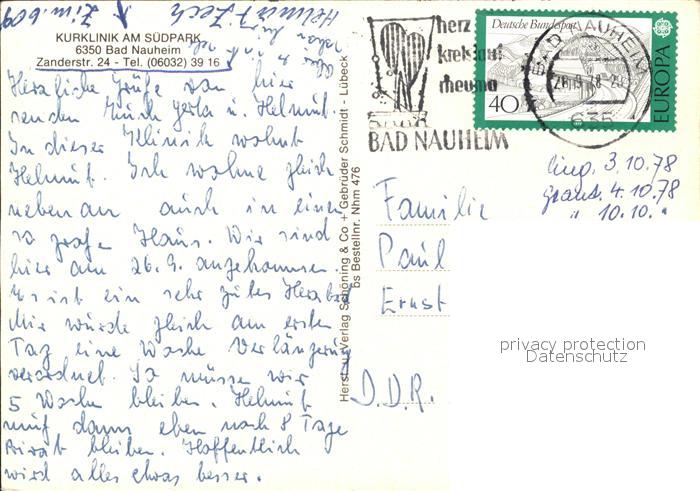 Zim. 609
KURKLINIK AM SÜDPARK
6350 Bad Nauheim
Zanderstr. 24 - Tel. (06032) 39 16
Herzliche Grüße von hier
senden Euch Gerta u. Helmut.
In dieser Klinik wohnt
Helmut. Ich wohne gleich
nebenan auch in einem
so großen Haus. Wir sind
hier am 26.9. angekommen.
Es ist ein sehr gutes Herzbad
Mir wurde gleich am ersten
Tag eine Woche Verlängerung
verordnet. So müssen wir
5 Woche bleiben. Helmut
muß dann eben noch 8 Tage
Privat bleiben. Hoffentlich
wird alles etwas besser.
Herst. u. Verlag Schöning & Co + Gebrüder Schmidt - Lübeck
bs Bestellnr. Nhm 476
herz
kreislauf
rheuma
BAD NAUHEIM
Deutsche Bundespost
40
EUROPA
BAD NAUHEIM
635
3.10.78
4.10.78
" 10.10. "
Familie
Paul
Ernst
D.D.R.
privacy protection
Datenschutz